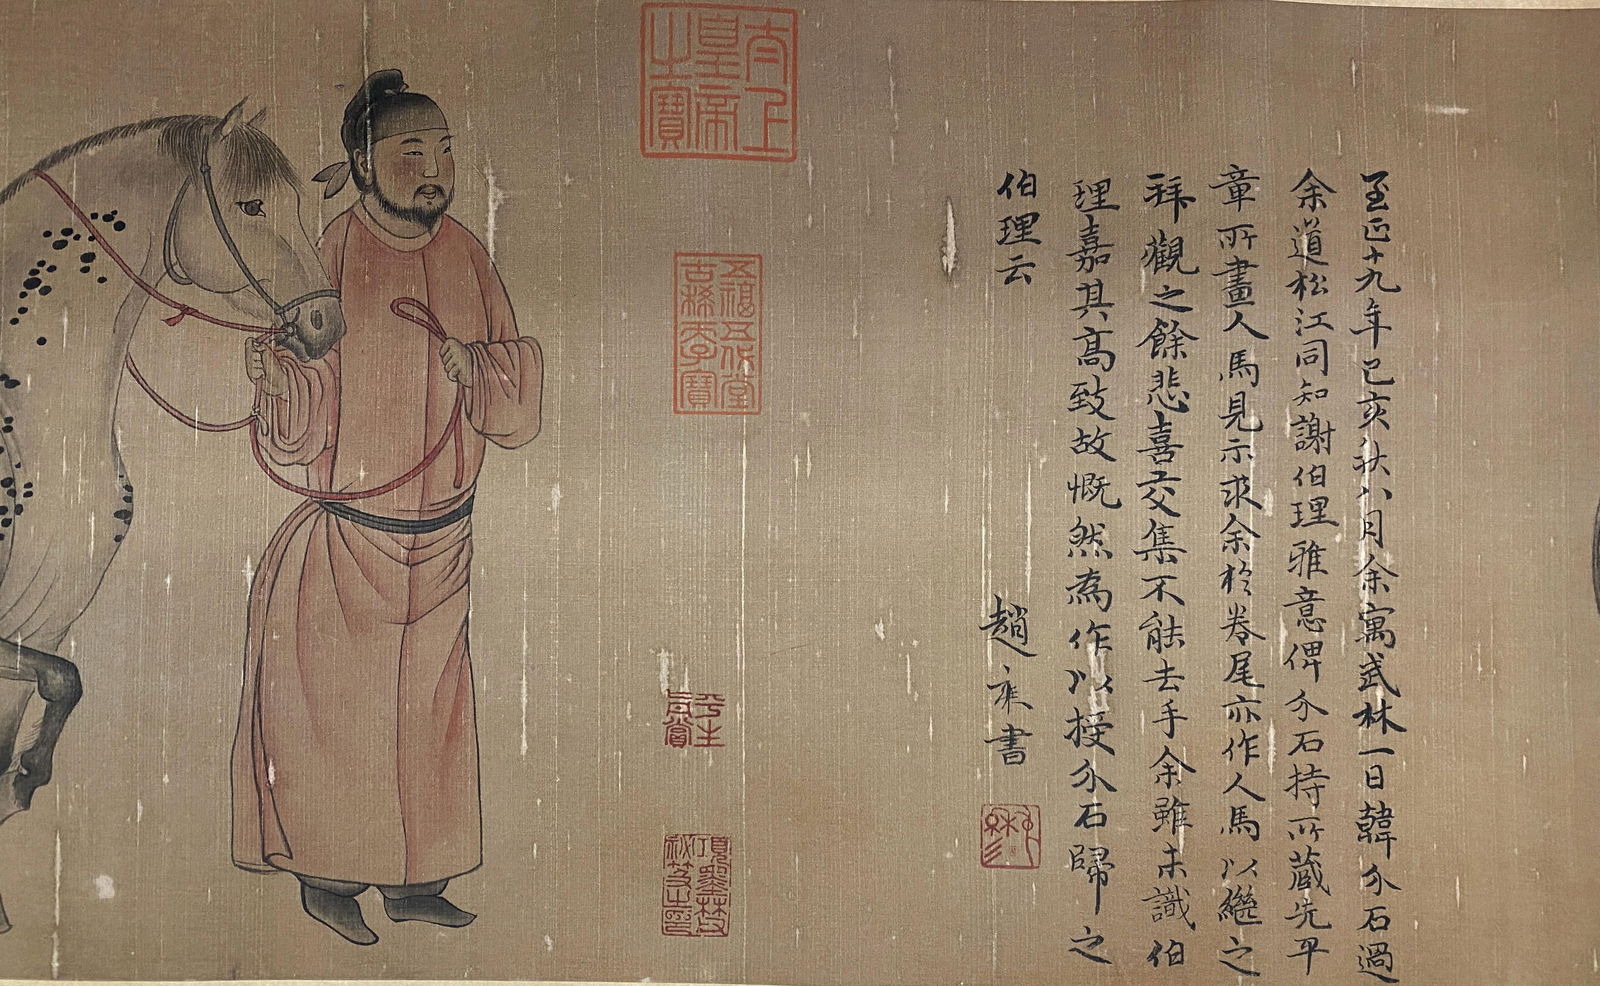 至正十九年己亥秋八月余寓武林一日韓介石過
余道松江同知謝伯理雅意俾介石持所藏先平
章所畫人馬見示求余於卷尾亦作人馬以繼之
拜觀之餘悲喜交集不能去手余雖未識伯
理嘉其高致故慨然為作以授介石歸之
伯理云
趙雍書
太上
皇帝
之寶
五福五代堂
古稀天子寶
平生
真賞
項墨林
祕笈之印